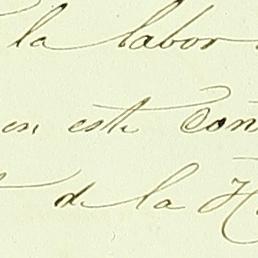 la labor
en este Con
de la H